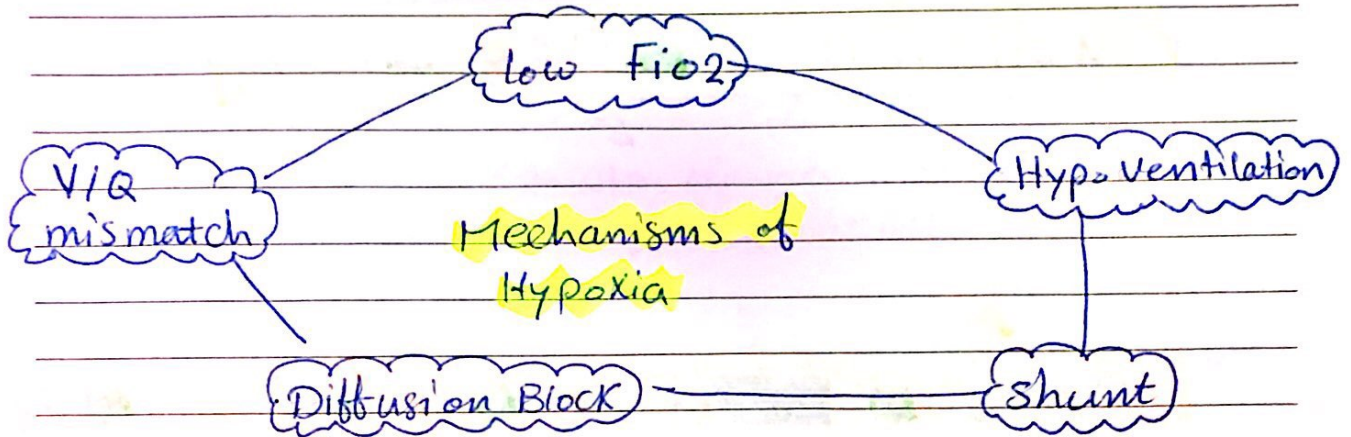 low Fio2
V/Q
mismatch
Hypoventilation
Mechanisms of
Hypoxia
Diffusion Block
shunt